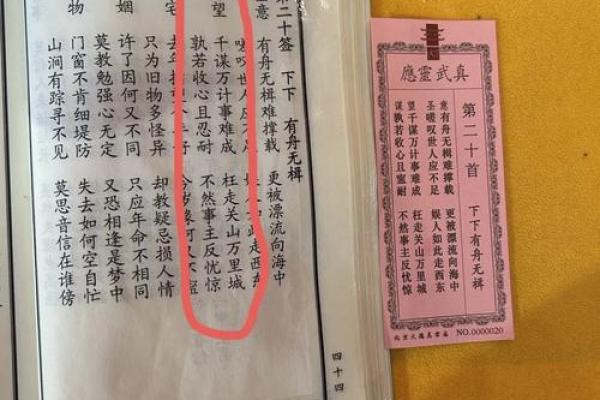 第二十签 下下 有舟无楫
意 有舟无楫难撑载 更被漂流向海中
叹世人应不足 此走西东
望 千谋万计事难成 枉走关山万里城
孰若收心且忍耐 不然事主反忧惊
宅 去年
只为旧物多怪异 却教疑忌损人情
姻 许了因何又不同 只应年命不相同
莫教勉强心无定 又恐相逢是梦中
物 门窗不肯细堤防 失去如何空自忙
山涧有踪寻不见 莫思音信在谁傍
四十四
真武靈應
第二十首 下下有舟无楫
意有舟无楫难撑载 更被漂流向海中
圣嗳叹世人应不足 娱人如此走西东
望千谋万计事难成 枉走关山万里城
谋孰若收心且宣耐 不然事主反忧惊
NO.0000020